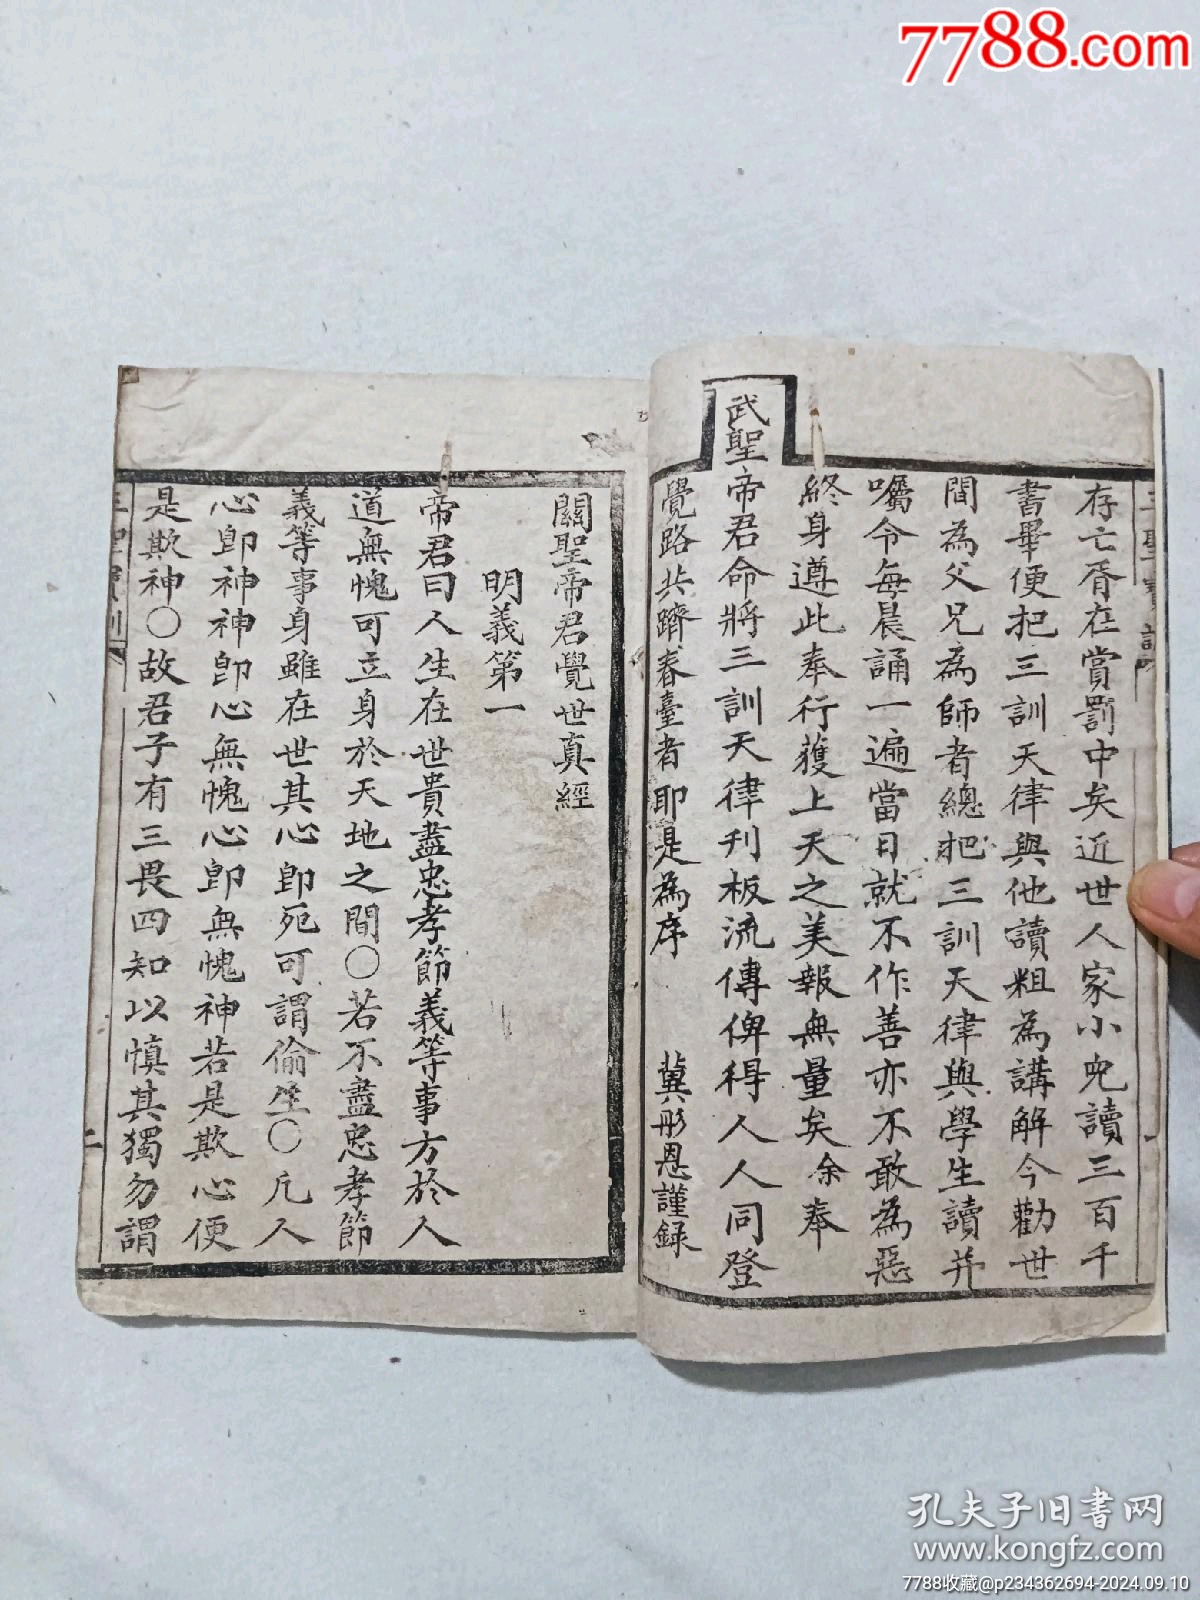 7788.com
三聖寶訓
存亡胥在賞罰中矣近世人家小兒讀三百千
書畢便把三訓天律與他讀粗為講解今勸世
間為父兄為師者總把三訓天律與學生讀并
囑令每晨誦一遍當日就不作善亦不敢為惡
終身遵此奉行獲上天之美報無量矣余奉
武聖帝君命將三訓天律刊板流傳俾得人人同登
覺路共躋春臺者即是為序 冀彤恩謹録
關聖帝君覺世真經
明義第一
帝君曰人生在世貴盡忠孝節義等事方於人
道無愧可立身於天地之間〇若不盡忠孝節
義等事身雖在世其心卽死可謂偷生〇凡人
心卽神神卽心無愧心卽無愧神若是欺心便
是欺神〇故君子有三畏四知以慎其獨勿謂
三聖寶訓
二
孔夫子旧书网
www.kongfz.com
7788收藏@p234362694-2024.09.10